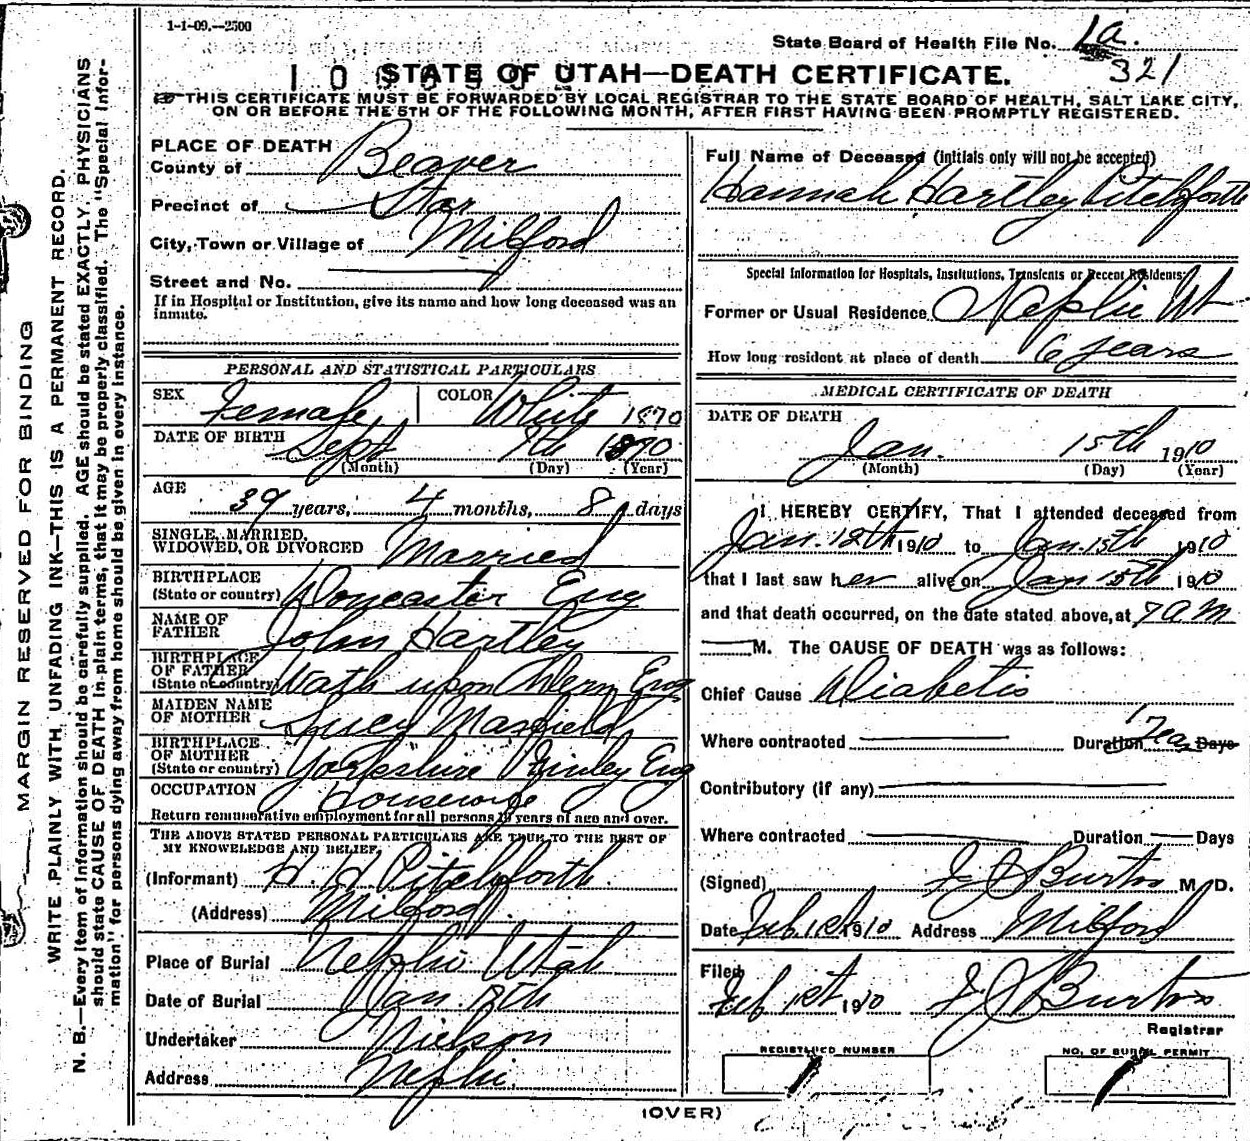 1-1-09.—2500
State Board of Health File No. 1a.
321
STATE OF UTAH—DEATH CERTIFICATE.
THIS CERTIFICATE MUST BE FORWARDED BY LOCAL REGISTRAR TO THE STATE BOARD OF HEALTH, SALT LAKE CITY,
ON OR BEFORE THE 5TH OF THE FOLLOWING MONTH, AFTER FIRST HAVING BEEN PROMPTLY REGISTERED.
MARGIN RESERVED FOR BINDING
WRITE PLAINLY WITH UNFADING INK—THIS IS A PERMANENT RECORD.
N. B.—Every item of information should be carefully supplied. AGE should be stated EXACTLY. PHYSICIANS
should state CAUSE OF DEATH in plain terms, that it may be properly classified. The "Special Infor-
mation" for persons dying away from home should be given in every instance.
PLACE OF DEATH
County of Beaver
Precinct of Star
City, Town or Village of Milford
Street and No.
If in Hospital or Institution, give its name and how long deceased was an
inmate.
PERSONAL AND STATISTICAL PARTICULARS
SEX Female COLOR White 1870
DATE OF BIRTH Sept 7th 1890
(Month) (Day) (Year)
AGE
39 years, 4 months, 8 days
SINGLE, MARRIED,
WIDOWED, OR DIVORCED Married
BIRTHPLACE
(State or country) Doncaster Eng
NAME OF
FATHER John Hartley
BIRTHPLACE
OF FATHER
(State or country) Wath upon Eng
MAIDEN NAME
OF MOTHER Lucy Maxfield
BIRTHPLACE
OF MOTHER
(State or country) Yorkshire Eng
OCCUPATION Housewife
Return remunerative employment for all persons 10 years of age and over.
THE ABOVE STATED PERSONAL PARTICULARS ARE TRUE TO THE BEST OF
MY KNOWLEDGE AND BELIEF.
(Informant) H. H Pitchforth.
(Address) Milford.
Place of Burial Nephi Utah
Date of Burial Jan. 18th
Undertaker Nielson
Address Nephi.
Full Name of Deceased (Initials only will not be accepted)
Hannah Hartley Pitchforth
Special Information for Hospitals, Institutions, Transients or Recent Residents:
Former or Usual Residence Nephi Ut
How long resident at place of death 6 years
MEDICAL CERTIFICATE OF DEATH
DATE OF DEATH
Jan. 15th 1910
(Month) (Day) (Year)
I HEREBY CERTIFY, That I attended deceased from
Jan. 12th 1910 to Jan. 15th 1910
that I last saw her alive on Jan 15th 1910
and that death occurred, on the date stated above, at 7 am
M. The CAUSE OF DEATH was as follows:
Chief Cause Diabetis
Where contracted Duration 1 Year Days
Contributory (if any)
Where contracted Duration Days
(Signed) J J Burton M. D.
Date Feb 1st 1910 Address Milford
Filed
Feb 1st 1910 J J Burton
Registrar
REGISTERED NUMBER
1
NO. OF BURIAL PERMIT
1
(OVER)